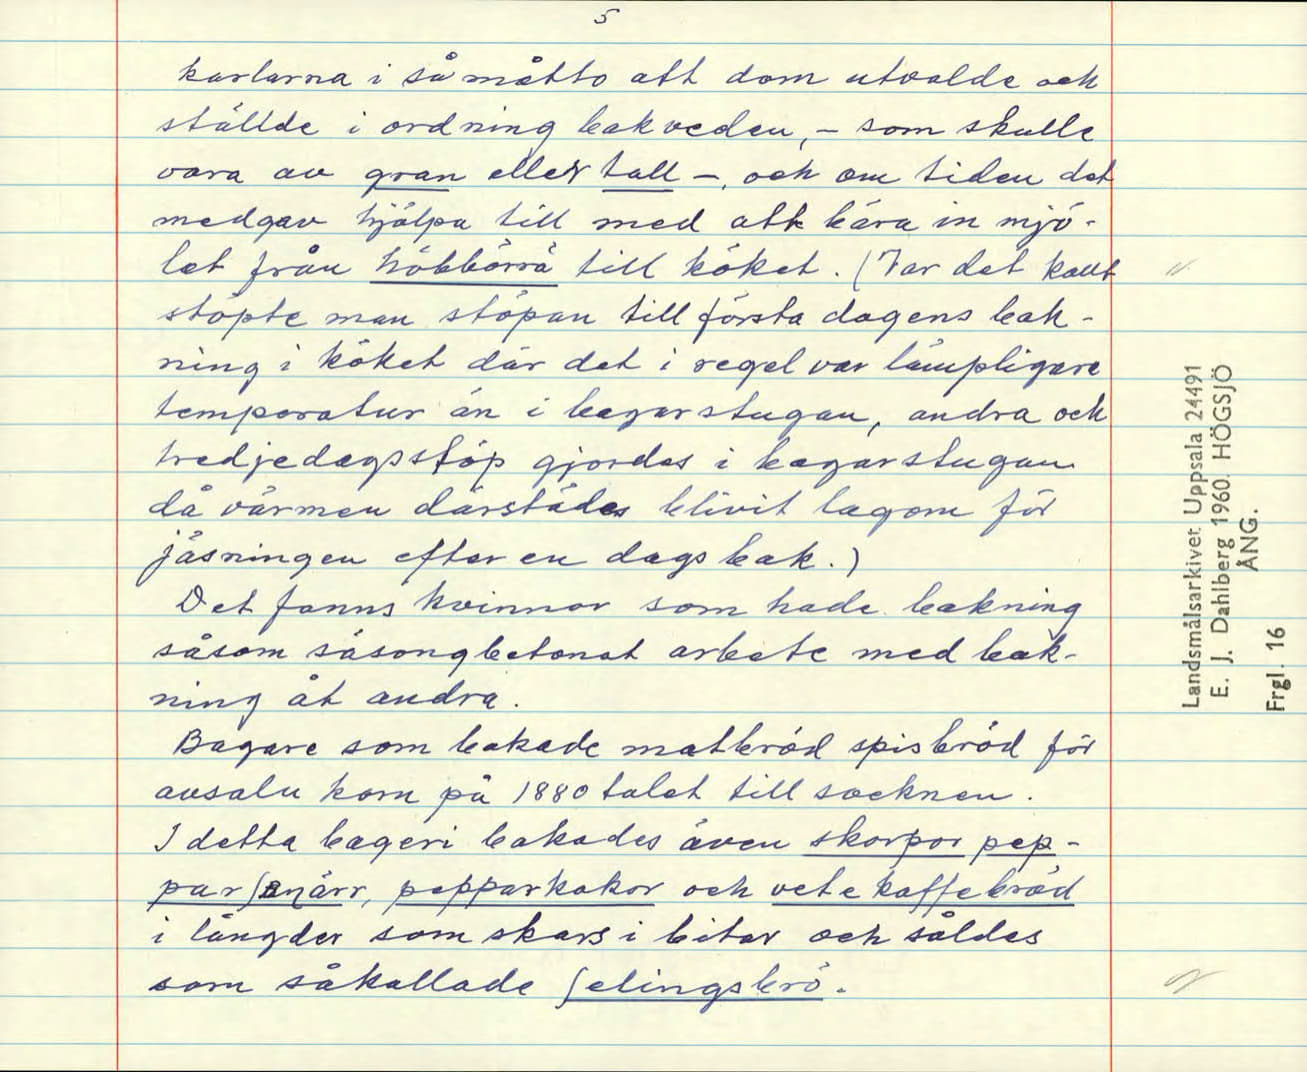 5
karlarna i så måtto att dom utvalde och
ställde i ordning bakveden, – som skulle
vara av gran eller tall –, och om tiden det
medgav hjälpa till med att bära in mjö-
let från höbbörrä till köket. (Var det kallt
stöpte man stöpan till första dagens bak-
ning i köket där det i regel var lämpligare
temperatur än i bagarstugan, andra och
tredjedagsstöp gjordes i bagarstugan
då värmen därstädes blivit lagom för
jäsningen efter en dags bak.)
Det fanns kvinnor som hade bakning
såsom säsongbetonat arbete med bak-
ning åt andra.
Bagare som bakade matbröd spisbröd för
avsalu kom på 1880 talet till socknen.
I detta bageri bakades även skorpor pep-
par, pepparkakor och vete kaffebröd
i längder som skars i bitar och såldes
som såkallade ʃelingsbrö.
Landsmålsarkivet Uppsala 24491
E. J. Dahlberg 1960. HÖGSJÖ
ÅNG.
Frgl. 16